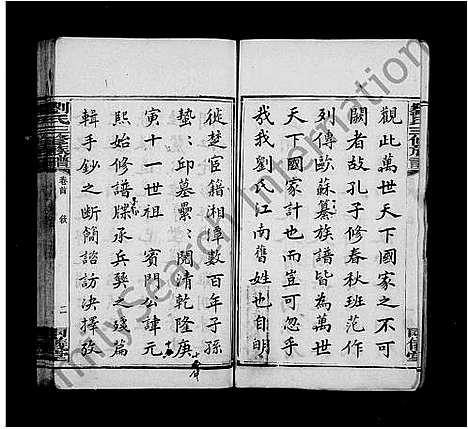 觀此萬世天下國家之不可
闕者故孔子修春秋班范作
列傳歐蘇纂族譜皆為萬世
天下國家計也而豈可忽乎
哉我劉氏江南舊姓也自明
徙楚宦籍湘潭數百年子孫
蟄蟄邱墓纍纍閱清乾隆庚
寅十一世祖 賓門公諱元
熙始修譜牒承兵燹之殘篇
輯手鈔之斷簡諮訪決擇攷
劉氏三修族譜
卷首 敘
二
FamilySearch International